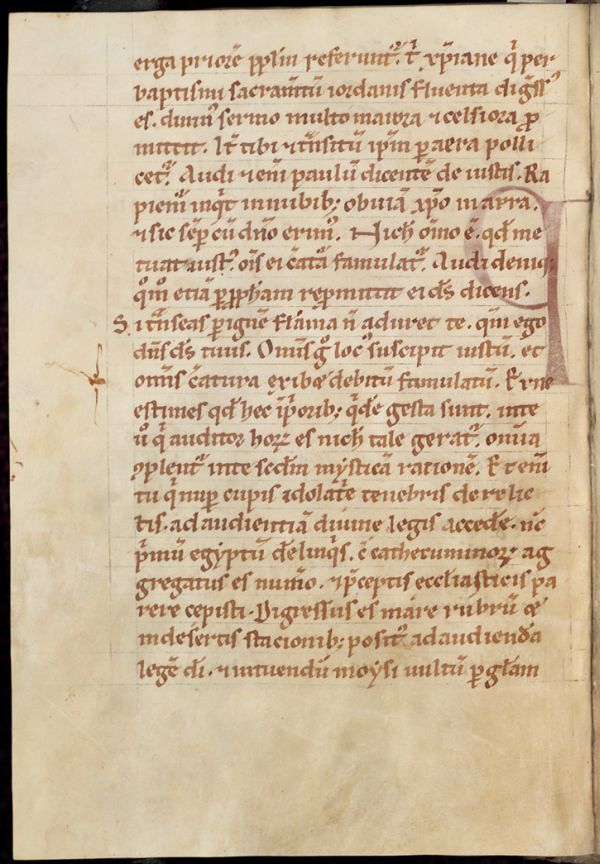 erga priorē pplm̄ referunt᷒. t᷒ xp̄iane q̄ per
baptismi sacram̄tū iordanis fluenta digress᷒
es. diuin᷒ sermo multo maiora ⁊ celsiora p̄
mittit. It᷒ tibi ⁊ t᷒nsitū ip̄m p̄ aera polli
cet᷒. Audi ⁊ enī paulū dicentē de iustis. Ra
piem᷒ inq̄t in nubib; obuiā xp̄o in aera.
⁊ sic sēp cū dn̄o erim᷒. Nich᷒ om̄o ē. qd̄ me
tuat iust᷒. om̄s ei c᷒atā famulat᷒. Audi deniq;
q᷒m etiā p̄ pp̄ham rep̄mittit ei ds̄ dicens.
S i t᷒nseas p̄ ignē flāma n̄ aduret te. qm̄ ego
dn̄s ds̄ tuus. Om̄is g᷒ loc᷒ suscipit iustū. et
om̄is c᷒atura exibet debitū famulatū. Et ne
estimes qd̄ hec ip᷒orib; q᷒de gesta sunt. in te
u᷒ q̄ auditor horꝝ es nich᷒ tale gerat᷒. omnia
ꝯplent᷒ in te scd̄m mysticā rationē. Et enī
tu q̄ nup̄ cupis idolat᷒e tenebris de relic
tis. ad audientiā diuine legis accede᷒. nc̄
p᷒mū egyptū delinq᷒s. c̄ cathecuminorꝝ ag
gregatus es num᷒o. ⁊ p᷒ceptis eccliasticis pa
rere cepisti. Digressus es mare rubrū &
in desertis stacionib; posit᷒ ad audiendā
legē di. ⁊ intuendū moysi uultū p̄ gl̄am